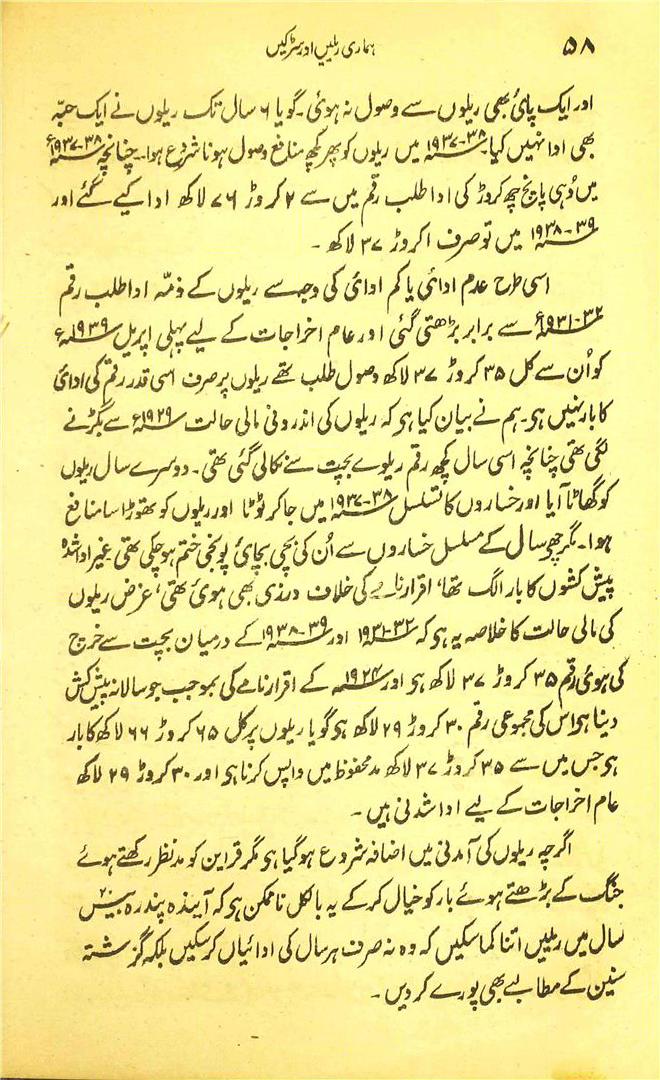 ۵۸
ہماری ریلیں اور سڑکیں
اور ایک پائ بھی ریلوں سے وصول نہ ہوئ۔ گویا ۶ سال تک ریلوں نے ایک حبّہ
بھی ادا نہیں کیا۔ ۳۸-۱۹۳۷ء میں ریلوں کو پھر کچھ منافع وصول ہونا شروع ہوا۔ چنانچہ ۳۸-۱۹۳۷ء
میں وُہی پانچ چھ کروڑ کی ادا طلب رقم میں سے ۲ کروڑ ۷۶ لاکھ ادا کیے گئے اور
۳۹-۱۹۳۸ء میں تو صرف ا کروڑ ۳۷ لاکھ ۔
اسی طرح عدم ادائ یا کم ادائ کی وجہ سے ریلوں کے ذمّہ ادا طلب رقم
۳۲-۱۹۳۱ء سے برابر بڑھتی گئی اور عام اخراجات کے لیے پہلی اپریل ۱۹۳۹ء
کو اُن سے کل ۳۵ کروڑ ۳۷ لاکھ وصول طلب تھے ریلوں پر صرف اسی قدر رقم کی ادائ
کا بار نہیں ہی۔ ہم نے بیان کیا ہی کہ ریلوں کی اندرونی مالی حالت ۱۹۲۹ء سے بگڑنے
لگی تھی چنانچہ اسی سال کچھ رقم ریلوے بچت سے نکالی گئی تھی۔ دوسرے سال ریلوں
کو گھاٹا آیا اور خساروں کا تسلسل ۳۸-۱۹۳۷ء میں جا کر ٹوٹا اور ریلوں کو تھوڑا سا منافع
ہوا۔ مگر چھ سال کے مسلسل خساروں سے اُن کی بچی بچائ پونجی ختم ہو چکی تھی۔ غیر ادا شدہ
پیش کشوں کا بار الگ تھا، اقرارنامے کی خلاف ورزی بھی ہوئ تھی، غرض ریلوں
کی مالی حالت کا خلاصہ یہ ہی کہ ۳۲-۱۹۳۱ء اور ۳۹-۱۹۳۸ء کے درمیان بچت سے خرچ
کی ہوئ رقم ۳۵ کروڑ ۳۷ لاکھ ہی اور ۱۹۲۴ء کے اقرارنامے کی بموجب جو سالانہ پیش کش
دینا ہی اس کی مجموعی رقم ۳۰ کروڑ ۲۹ لاکھ ہی گویا ریلوں پر کل ۶۵ کروڑ ۶۶ لاکھ کا بار
ہی جس میں سے ۳۵ کروڑ ۳۷ لاکھ مد محفوظ میں واپس کرنا ہی اور ۳۰ کروڑ ۲۹ لاکھ
عام اخراجات کے لیے ادا شدنی ہیں ۔
اگرچہ ریلوں کی آمدنی میں اضافہ شروع ہو گیا ہی مگر قراین کو مدنظر رکھتے ہوئے
جنگ کے بڑھتے ہوئے بار کو خیال کر کے یہ بالکل ناممکن ہی کہ آیندہ پندرہ بیس
سال میں ریلیں اتنا کما سکیں کہ وہ نہ صرف ہر سال کی ادائیاں کر سکیں بلکہ گزشتہ
سنین کے مطالبے بھی پورے کر دیں ۔